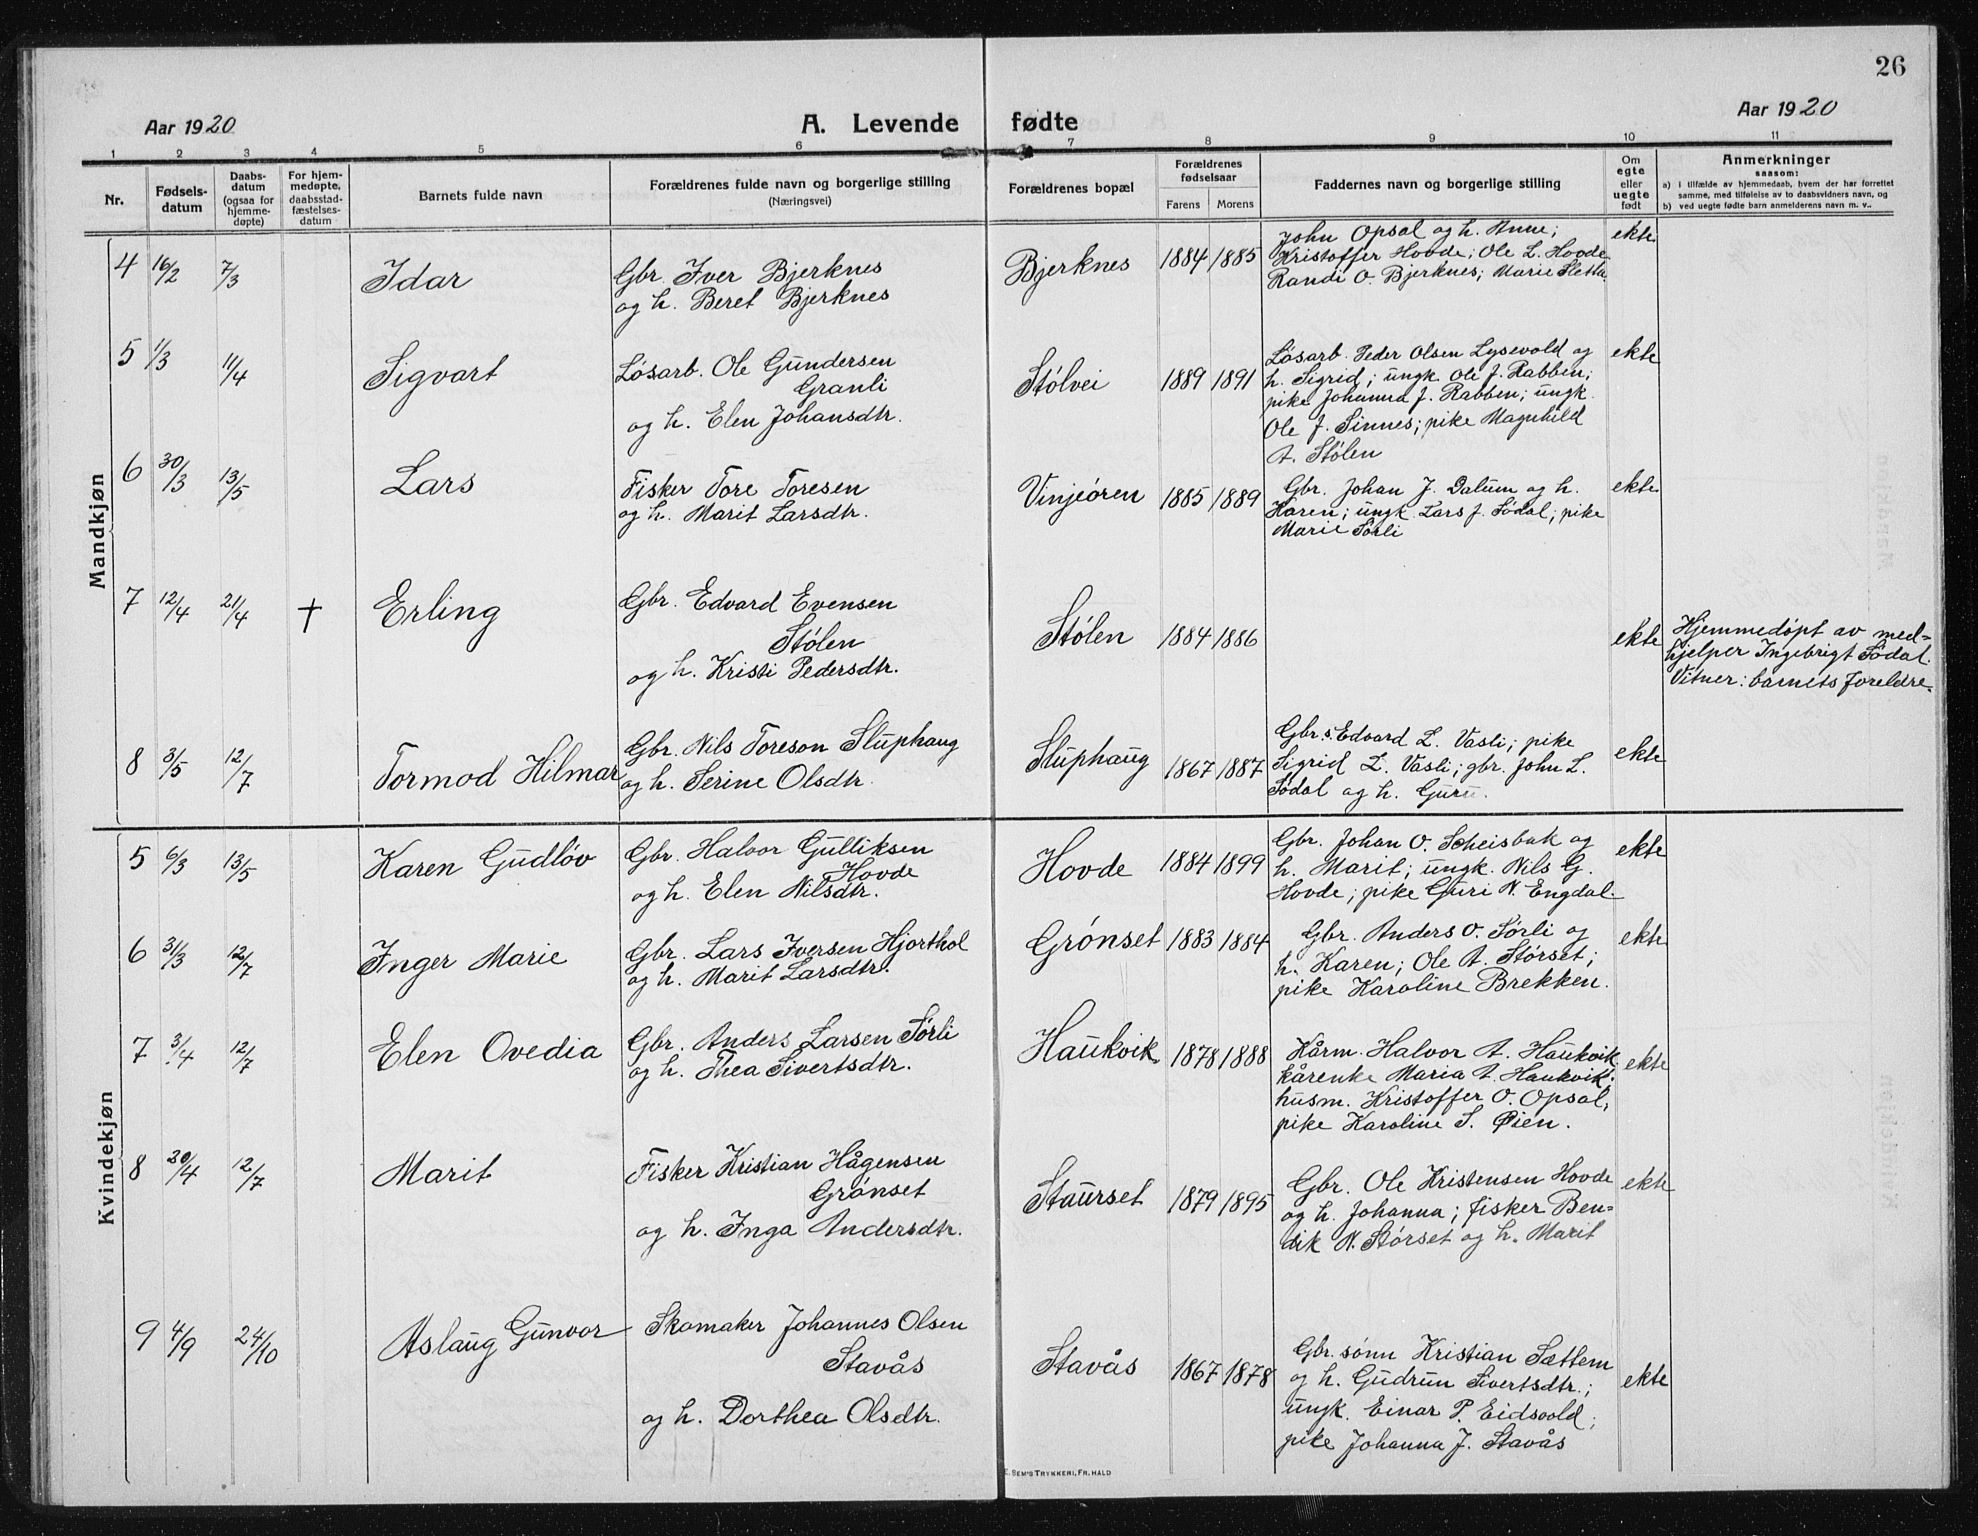 26
Aar 1920
A. Levende fødte
Aar 1920
1 2 3 4 5 6 7 8 9 10 11
Nr.
Fødsels-
datum
Daabs-
datum
(ogsaa for
hjemme-
døpte)
For hjem-
medøpte,
daabsstad-
fæstelses-
datum
Barnets fulde navn
Forældrenes fulde navn og borgerlige stilling
(Næringsvei)
Forældrenes bopæl
Forældrenes
fødselsaar
Farens Morens
Faddernes navn og borgerlige stilling
Om
egte
eller
uegte
født
Anmerkninger
saasom:
a) i tilfælde av hjemmedaab, hvem der har forrettet
samme, med tilføielse av to daabsvidners navn, og
b) ved uegte fødte barn anmelderens navn m. v..
Mandkjøn
4 16/2 7/3 Idar
Gbr. Iver Bjerknes
og h. Beret Bjerknes
Bjerknes 1884 1885
John Opsal og h. Anne;
Kristoffer Hovde; Ole L. Hovde
Randi O. Bjerknes; Marie Sletta.
ekte
5 1/3 11/4 Sigvart
Løsarb. Ole Gundersen
Granli
og h. Elen Johansdtr.
Stølvei 1889 1891
Løsarb. Peder Olsen Lysevold og
h. Sigrid; ungk. Ole J. Rabben;
pike Johanna J. Rabben; ungk.
Ole J. Sinnes; pike Magnhild
A. Stølen
ekte
6 30/3 13/5 Lars
Fisker Tore Toresen
og h. Marit Larsdtr.
Vinjeøren 1885 1889
Gbr. Johan J. Dalum og h.
Karen; ungk. Lars J. Sødal; pike
Marie Sørli
ekte
7 12/4 21/4 † Erling
Gbr. Edvard Evensen
Stølen
og h. Kristi Pedersdtr.
Stølen 1884 1886
ekte
Hjemmedøpt av med-
hjelper Ingebrigt Sødal.
Vitner: barnets foreldre.
8 3/5 12/7 Tormod Hilmar
Gbr. Nils Toreson Sluphaug
og h. Serine Olsdtr.
Sluphaug 1867 1887
Gbr.s. Edvard L. Vasli; pike
Sigrid L. Vasli; gbr. John L.
Sødal og h. Guru.
ekte
Kvindekjøn
5 6/3 13/5 Karen Gudløv
Gbr. Halvor Gulliksen
Hovde
og h. Elen Nilsdtr.
Hovde 1884 1899
Gbr. Johan O. Scheisbak og
h. Marit; ungk. Nils G.
Hovde; pike Guri N. Engdal.
ekte
6 31/3 12/7 Inger Marie
Gbr. Lars Iversen Hjorthol
og h. Marit Larsdtr.
Grønset 1883 1884
Gbr. Anders O. Sørli og
h. Karen; Ole A. Størset;
pike Karoline Brekken.
ekte
7 3/4 12/7 Elen Ovedia
Gbr. Anders Larsen Sørli
og h. Thea Sivertsdtr.
Haukvik. 1878 1888
Kårm. Halvor A. Haukvik
kårenke Maria A. Haukvik;
husm. Kristoffer O. Opsal,
pike Karoline S. Øien.
ekte
8 20/4 12/7 Marit
Fisker Kristian Hågensen
Grønset
og h. Inga Andersdtr.
Staurset 1879 1895
Gbr. Ole Kristensen Hovde
og h. Johanna; fisker Ben-
dik N. Størset og h. Marit
ekte
9 4/9 24/10 Aslaug Gunvor
Skomaker Johannes Olsen
Stavås
og h. Dorthea Olsdtr.
Stavås 1867 1878
Gbr. sønn Kristian Sættem
og h. Gudrun Sivertsdtr.;
ungk. Einar P. Eidsvold;
pike Johanna J. Stavås
ekte
E. SEM'S TRYKKERI, FR. HALD